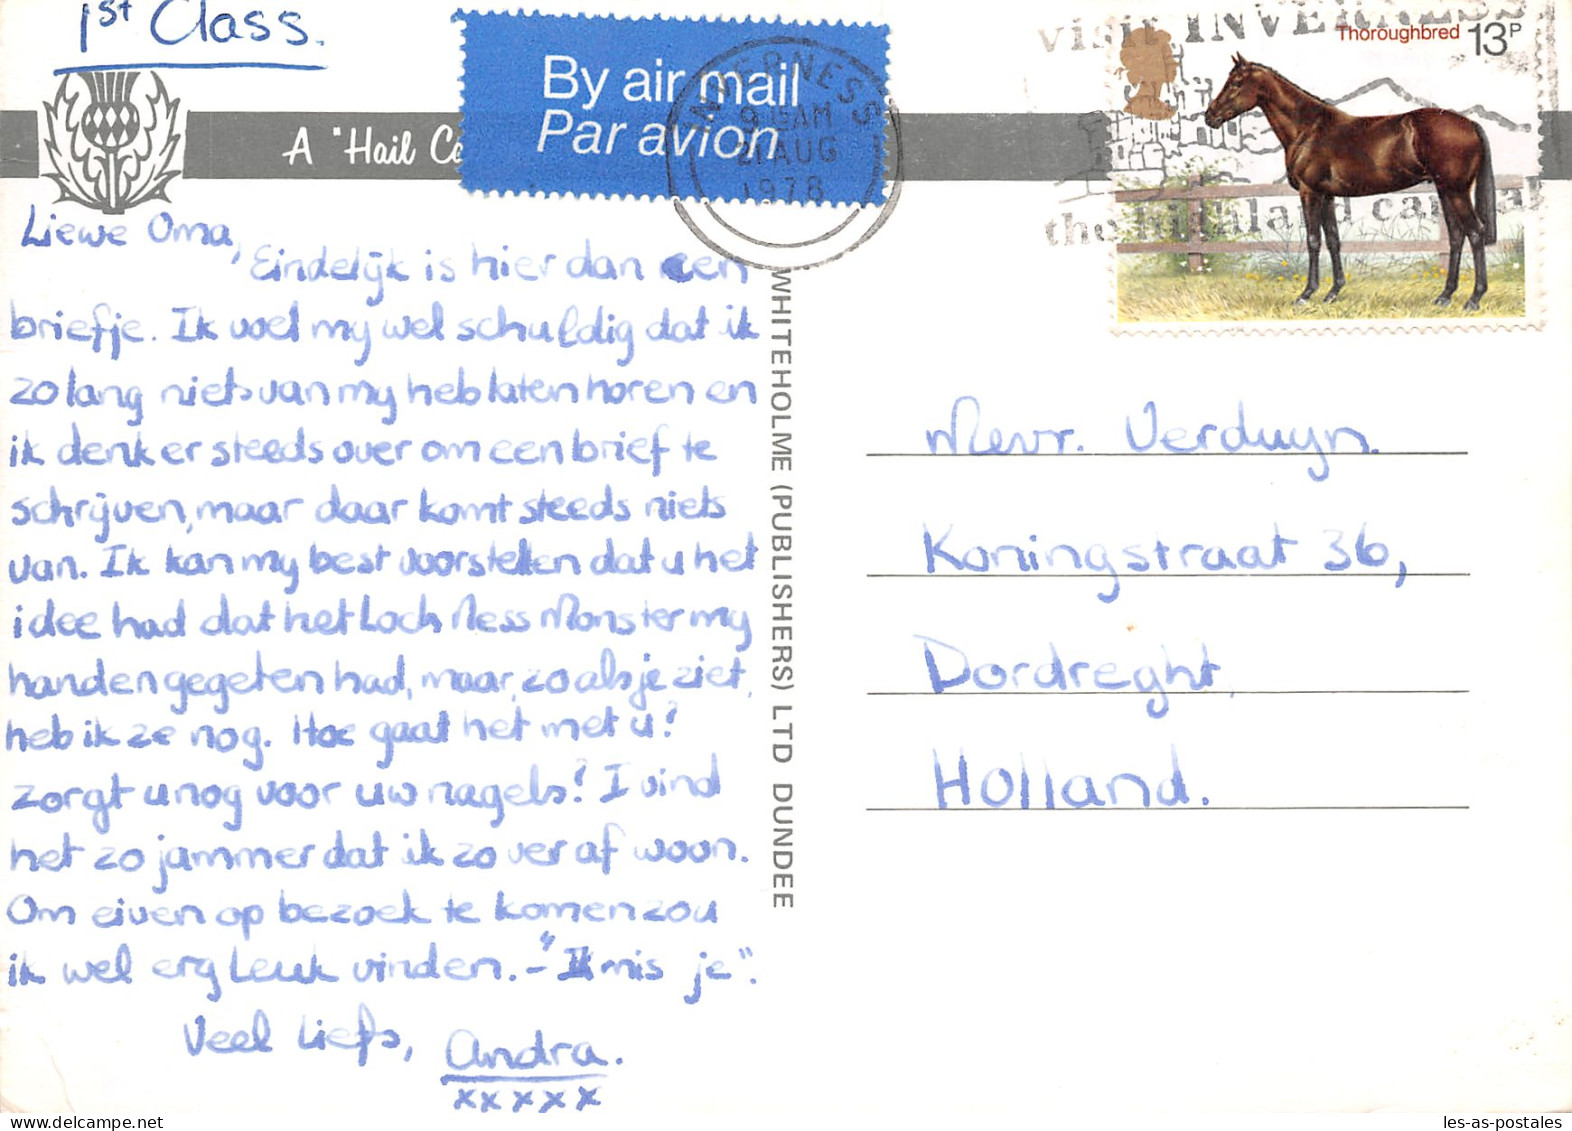 1st Class.
By air mail
Par avion
A "Hail Ce
INVERNESS
9 15AM
21 AUG
1978
visit INVERNESS
the highland capital
Thoroughbred 13P
Liewe Oma,
Eindelijk is hier dan een
briefje. Ik voel my wel schuldig dat ik
zo lang niets van my heb laten horen en
ik denk er steeds over om een brief te
schrijven, maar daar komt steeds niets
van. Ik kan my best voorstellen dat u het
idee had dat het Loch Ness Monster my
handen gegeten had, maar, zoals je ziet,
heb ik ze nog. Hoe gaat het met u?
zorgt u nog voor uw nagels? I vind
het zo jammer dat ik zo ver af woon.
Om eiven op bezoek te komen zou
ik wel erg leuk vinden. - "Ik mis je".
Veel Liefs, Andra.
xxxxx
WHITEHOLME (PUBLISHERS) LTD DUNDEE
Mevr. Verduyn.
Koningstraat 36,
Dordreght,
Holland.
les-as-postales